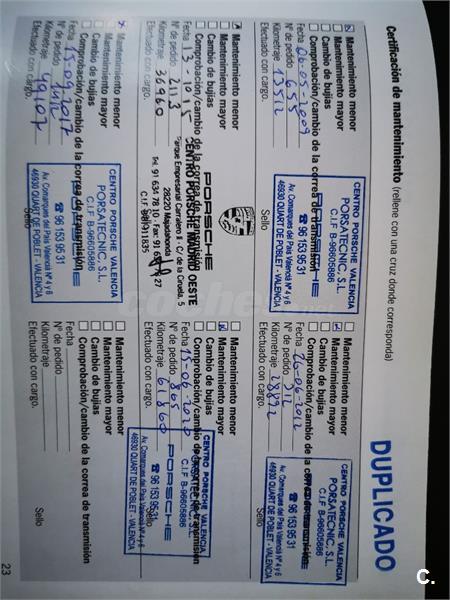 Certificación de mantenimiento (rellene con una cruz donde corresponda)
DUPLICADO
Mantenimiento menor
Mantenimiento mayor
Cambio de bujías
Comprobación/cambio de la correa de transmisión
Fecha 06-05-2009
Nº de pedido 655
Kilometraje 13512
Efectuado con cargo.
Sello
CENTRO PORSCHE VALENCIA
PORSATECNIC, S.L.
C.I.F B-96605886
☎ 96 153 95 31
Av. Comarques del País Valencià Nº 4 y 6
46930 QUART DE POBLET - VALENCIA
Mantenimiento menor
Mantenimiento mayor
Cambio de bujías
Comprobación/cambio de la correa de transmisión
Fecha 26-06-2012
Nº de pedido 912
Kilometraje 28892
Efectuado con cargo.
Sello
CENTRO PORSCHE VALENCIA
PORSATECNIC, S.L.
C.I.F B-96605886
☎ 96 153 95 31
Av. Comarques del País Valencià Nº 4 y 6
46930 QUART DE POBLET - VALENCIA
Mantenimiento menor
Mantenimiento mayor
Cambio de bujías
Comprobación/cambio de la correa de transmisión
Fecha 13-10-15
Nº de pedido 2113
Kilometraje 36960
Efectuado con cargo.
PORSCHE
CENTRO PORSCHE MADRID OESTE
Parque Empresarial Carralero II - C/ de la Ciruela, 5
28220 Majadahonda
Tel. 91 634 78 10 - Fax: 91 27
Mantenimiento menor
Mantenimiento mayor
Cambio de bujías
Comprobación/cambio de la correa de transmisión
Fecha 15-06-2020
Nº de pedido 805
Kilometraje 61860
Efectuado con cargo.
Sello
PORSCHE
CENTRO PORSCHE VALENCIA
PORSATECNIC, S.L.
C.I.F B-96605886
☎ 96 153 95 31
Av. Comarques del País Valencià Nº 4 y 6
46930 QUART DE POBLET - VALENCIA
Mantenimiento menor
Mantenimiento mayor
Cambio de bujías
Comprobación/cambio de la correa de transmisión
Fecha 15-09-2017
Nº de pedido
Kilometraje 49107
Efectuado con cargo.
Sello
CENTRO PORSCHE VALENCIA
PORSATECNIC, S.L.
C.I.F B-96605886
☎ 96 153 95 31
Av. Comarques del País Valencià Nº 4 y 6
46930 QUART DE POBLET - VALENCIA
Mantenimiento menor
Mantenimiento mayor
Cambio de bujías
Comprobación/cambio de la correa de transmisión
Fecha
Nº de pedido
Kilometraje
Efectuado con cargo.
Sello
23
coches.net
C.